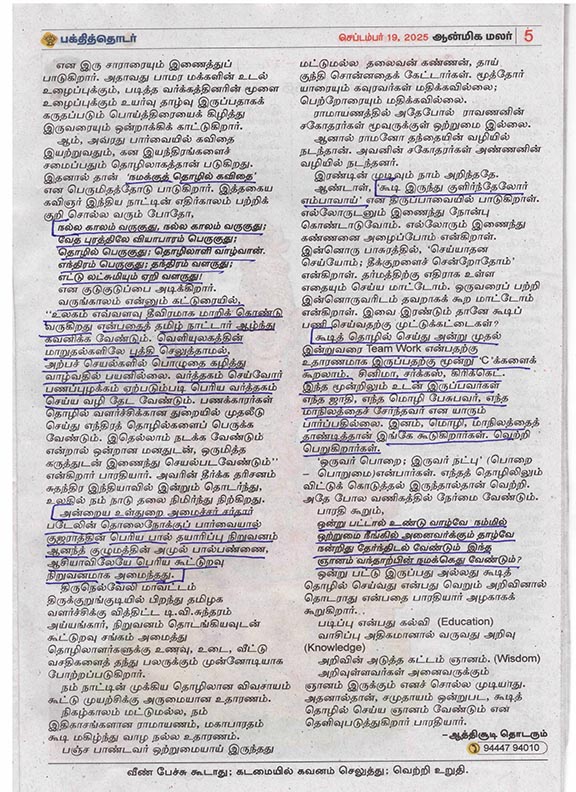 பக்தித்தொடர்
செப்டம்பர் 19, 2025 ஆன்மிக மலர் 5
என இரு சாராரையும் இணைத்துப்
பாடுகிறார். அதாவது பாமர மக்களின் உடல்
உழைப்புக்கும், படித்த வர்க்கத்தினரின் மூளை
உழைப்புக்கும் உயர்வு தாழ்வு இருப்பதாகக்
கருதப்படும் பொய்த்திரையைக் கிழித்து
இருவரையும் ஒன்றாக்கிக் காட்டுகிறார்.
ஆம், அவரது பார்வையில் கவிதை
இயற்றுவதும், கன இயந்திரங்களைச்
சமைப்பதும் தொழிலாகத்தான் படுகிறது.
இதனால் தான் 'நமக்குத் தொழில் கவிதை'
என பெருமிதத்தோடு பாடுகிறார். இத்தகைய
கவிஞர் இந்திய நாட்டின் எதிர்காலம் பற்றிக்
குறி சொல்ல வரும் போதோ,
நல்ல காலம் வருகுது, நல்ல காலம் வருகுது;
வேத புரத்திலே வியாபாரம் பெருகுது;
தொழில் பெருகுது; தொழிலாளி வாழ்வான்.
எந்திரம் பெருகுது; தந்திரம் வளருது;
எட்டு லட்சுமியும் ஏறி வளருது!
என குடுகுடுப்பை அடிக்கிறார்.
வருங்காலம் என்னும் கட்டுரையில்,
''உலகம் எவ்வளவு தீவிரமாக மாறிக் கொண்டு
வருகிறது என்பதைத் தமிழ் நாட்டார் ஆழ்ந்து
கவனிக்க வேண்டும். வெளியுலகத்தின்
மாறுதல்களிலே புத்தி செலுத்தாமல்,
அற்பச் செயல்களில் பொழுதை கழித்து
வாழ்வதில் பயனில்லை. வர்த்தகம் செய்வோர்
பணப்புழக்கம் ஏற்படும்படி பெரிய வர்த்தகம்
செய்ய வழி தேட வேண்டும். பணக்காரர்கள்
தொழில் வளர்ச்சிக்கான துறையில் முதலீடு
செய்து எந்திரத் தொழில்களைப் பெருக்க
வேண்டும். இதெல்லாம் நடக்க வேண்டும்
என்றால் ஒன்றான மனதுடன், ஒருமித்த
கருத்துடன் இணைந்து செயல்படவேண்டும்''
என்கிறார் பாரதியார். அவரின் தீர்க்க தரிசனம்
சுதந்திர இந்தியாவில் இன்றும் தொடர்ந்து,
உலகில் நம் நாடு தலை நிமிர்ந்து நிற்கிறது.
அன்றைய உள்துறை அமைச்சர் சர்தார்
படேலின் தொலைநோக்குப் பார்வையால்
குஜராத்தின் பெரிய பால் தயாரிப்பு நிறுவனம்
ஆனந்த் குழுமத்தின் அமுல் பால்பண்ணை,
ஆசியாவிலேயே பெரிய கூட்டுறவு
நிறுவனமாக அமைந்தது.
திருநெல்வேலி மாவட்டம்
திருக்குறுங்குடியில் பிறந்து தமிழக
வளர்ச்சிக்கு வித்திட்ட டி.வி.சுந்தரம்
அய்யங்கார், நிறுவனம் தொடங்கியவுடன்
கூட்டுறவு சங்கம் அமைத்து
தொழிலாளர்களுக்கு உணவு, உடை, வீட்டு
வசதிகளைத் தந்து பலருக்கும் முன்னோடியாக
போற்றப்படுகிறார்.
நம் நாட்டின் முக்கிய தொழிலான விவசாயம்
கூட்டு முயற்சிக்கு அருமையான உதாரணம்.
நிகழ்காலம் மட்டுமல்ல, நம்
இதிகாசங்களான ராமாயணம், மகாபாரதம்
கூடி மகிழ்ந்து வாழ நல்ல உதாரணம்.
பஞ்ச பாண்டவர் ஒற்றுமையாய் இருந்தது
மட்டுமல்ல தலைவன் கண்ணன், தாய்
குந்தி சொன்னதைக் கேட்டார்கள். மூத்தோர்
யாரையும் கவுரவர்கள் மதிக்கவில்லை;
பெற்றோரையும் மதிக்கவில்லை.
ராமாயணத்தில் அதேபோல் ராவணனின்
சகோதரர்கள் மூவருக்குள் ஒற்றுமை இல்லை.
ஆனால் ராமனோ தந்தையின் வழியில்
நடந்தான். அவனின் சகோதரர்கள் அண்ணனின்
வழியில் நடந்தனர்.
இரண்டின் முடிவும் நாம் அறிந்ததே.
ஆண்டாள், 'கூடி இருந்து குளிர்ந்தேலோர்
எம்பாவாய்' என திருப்பாவையில் பாடுகிறாள்.
எல்லோருடனும் இணைந்து நோன்பு
கொண்டாடுவோம். எல்லோரும் இணைந்து
கண்ணனை அழைப்போம் என்கிறாள்.
இன்னொரு பாசுரத்தில், 'செய்யாதன
செய்யோம்; தீக்குறளைச் சென்றோதோம்'
என்கிறாள். தர்மத்திற்கு எதிராக உள்ள
எதையும் செய்ய மாட்டோம். ஒருவரைப் பற்றி
இன்னொருவரிடம் தவறாகக் கூற மாட்டோம்
என்கிறாள். இவை இரண்டும் தானே கூடிப்
பணி செய்வதற்கு முட்டுக்கட்டைகள்?
கூடித் தொழில் செய்து அன்று முதல்
இன்றுவரை Team Work என்பதற்கு
உதாரணமாக இருப்பதற்கு மூன்று 'C 'க்களைக்
கூறலாம். சினிமா, சர்க்கஸ், கிரிக்கெட்.
இந்த மூன்றிலும் உடன் இருப்பவர்கள்
எந்த ஜாதி, எந்த மொழி பேசுபவர், எந்த
மாநிலத்தைச் சேர்ந்தவர் என யாரும்
பார்ப்பதில்லை. இனம், மொழி, மாநிலத்தைத்
தாண்டித்தான் இங்கே கூடுகிறார்கள். வெற்றி
பெறுகிறார்கள்.
'ஒருவர் பொறை; இருவர் நட்பு' (பொறை
- பொறுமை)என்பார்கள். எந்தத் தொழிலிலும்
விட்டுக் கொடுத்தல் இருந்தால்தான் வெற்றி.
அதே போல வணிகத்தில் நேர்மை வேண்டும்.
பாரதி கூறும்,
ஒன்று பட்டால் உண்டு வாழ்வே நம்மில்
ஒற்றுமை நீங்கில் அனைவர்க்கும் தாழ்வே
நன்றிது தேர்ந்திடல் வேண்டும் இந்த
ஞானம் வந்தாற்பின் நமக்கெது வேண்டும்?
ஒன்று பட்டு இருப்பது அல்லது கூடித்
தொழில் செய்வது என்பது வெறும் அறிவினால்
தொடராது என்பதை பாரதியார் அழகாகக்
கூறுகிறார்.
படிப்பு என்பது கல்வி (Education)
வாசிப்பு அதிகமானால் வருவது அறிவு
(Knowledge)
அறிவின் அடுத்த கட்டம் ஞானம். (Wisdom)
அறிவுள்ளவர்கள் அனைவருக்கும்
ஞானம் இருக்கும் எனச் சொல்ல முடியாது.
அதனால்தான், சமுதாயம் ஒன்றுபட, கூடித்
தொழில் செய்ய ஞானம் வேண்டும் என
தெளிவுபடுத்துகிறார் பாரதியார்.
-ஆத்திசூடி தொடரும்
94447 94010
வீண் பேச்சு கூடாது; கடமையில் கவனம் செலுத்து; வெற்றி உறுதி.